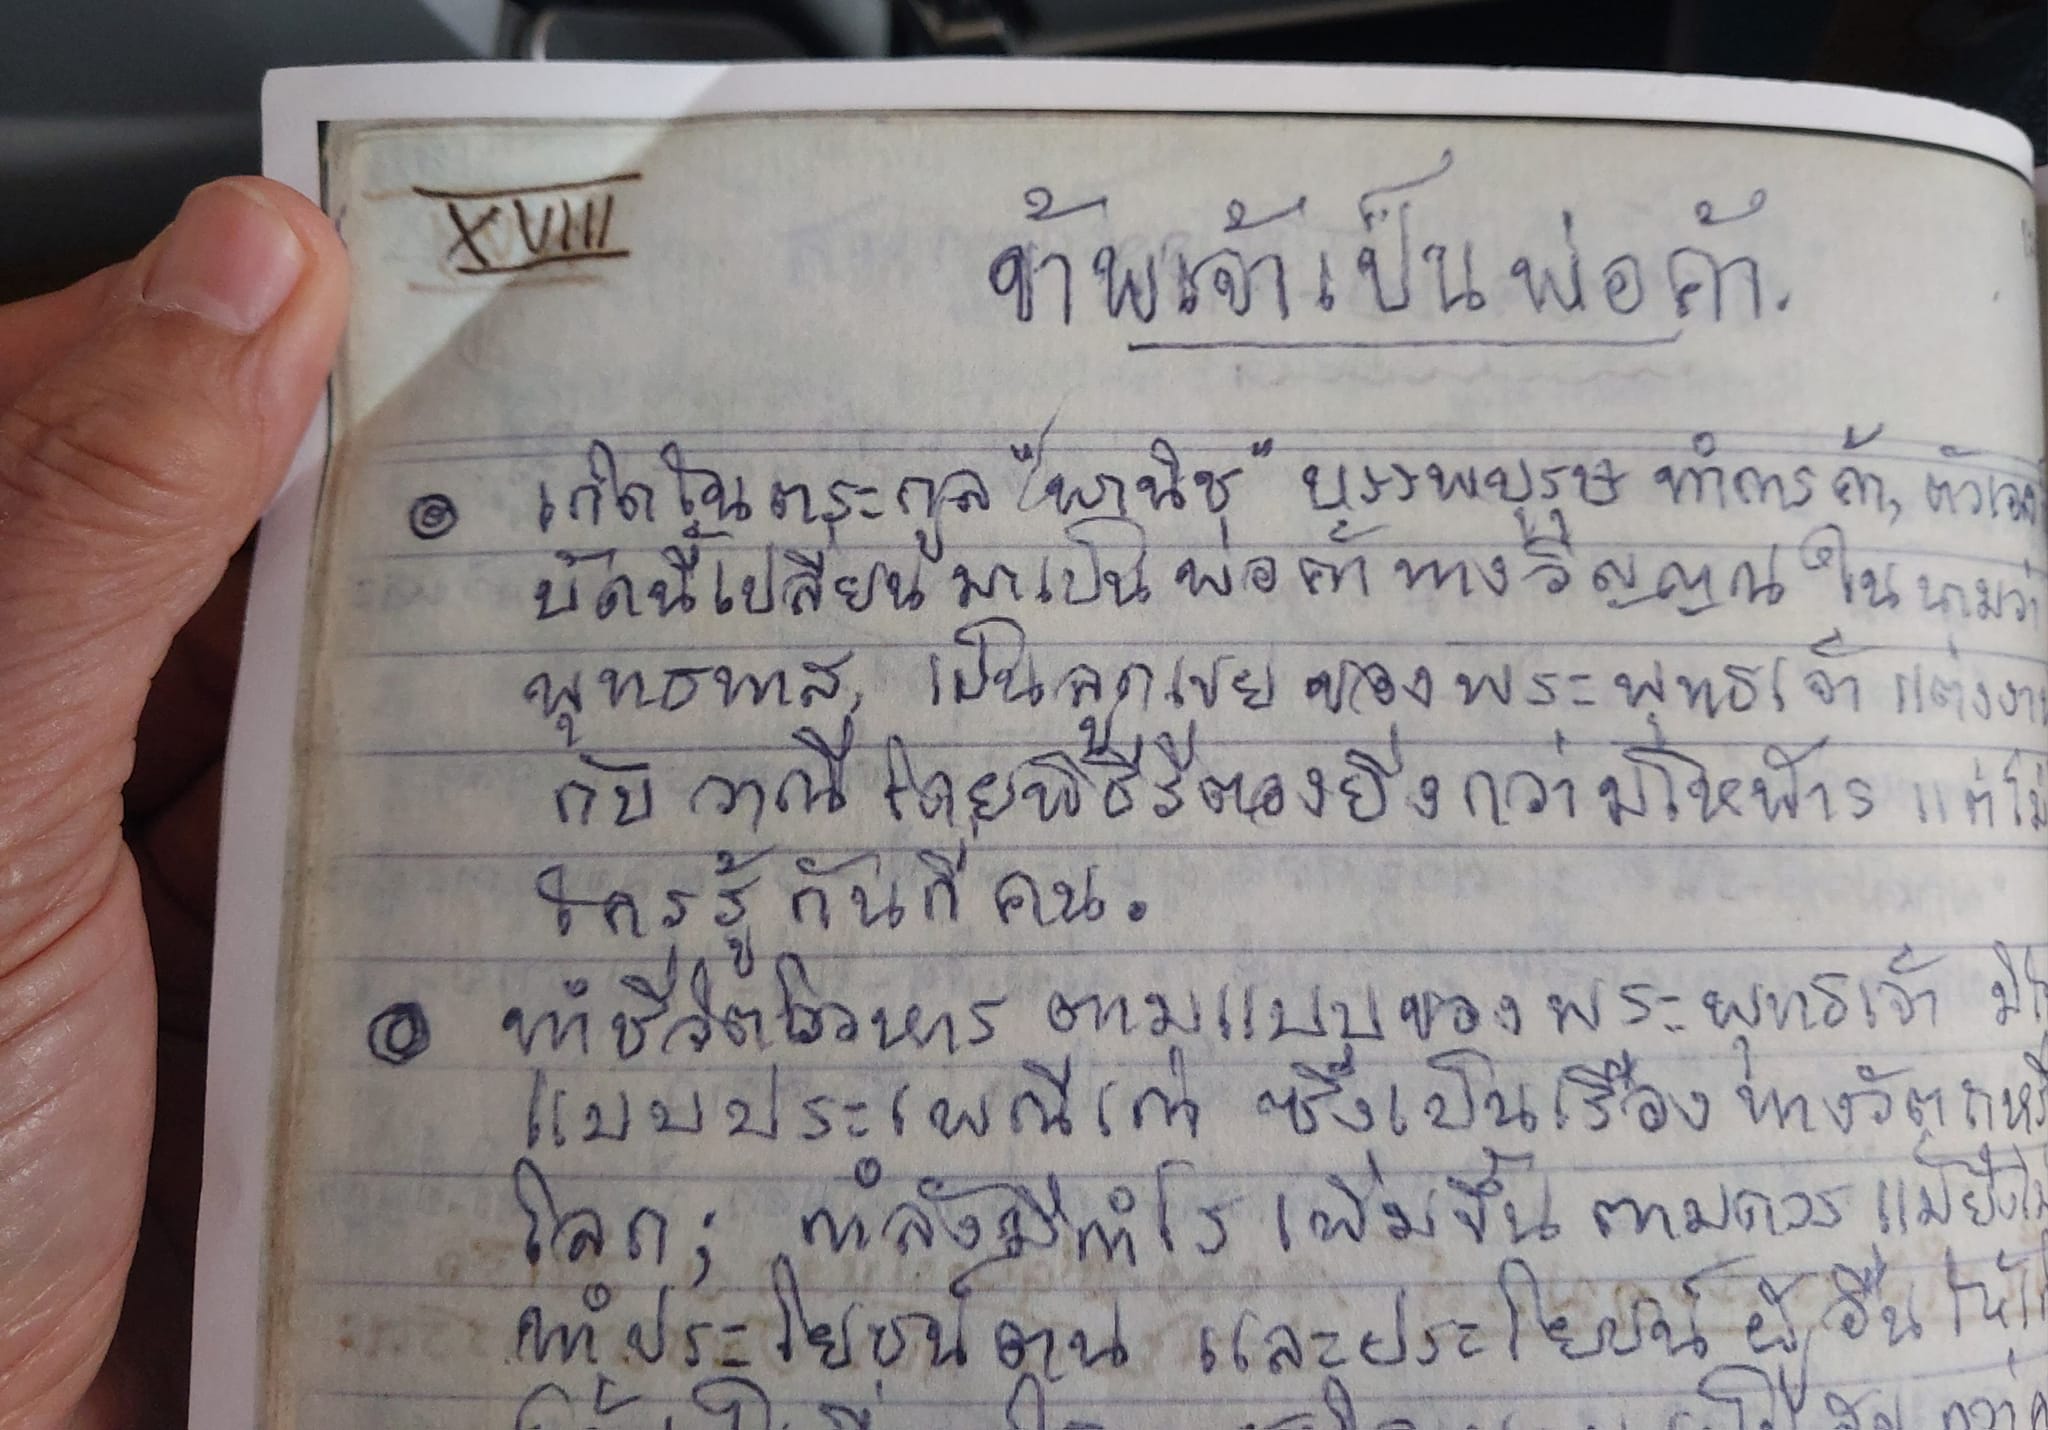 XVIII
ข้าพเจ้าเป็นพ่อค้า.
เกิดในตระกูล "พานิช" บรรพบุรุษ ทำการค้า, ตัวเอง
บัดนี้เปลี่ยนมาเป็นพ่อค้าทางวิญญาณ ในนามว่า
พุทธทาส, เป็นลูกเขยของพระพุทธเจ้า แต่งงาน
กับ วาณี โดยพิธีรีตองยิ่งกว่ามโหฬาร แต่ไม่
ใครรู้กันกี่คน.
ทำชีวิตโวหาร ตามแบบของพระพุทธเจ้า
แบบประเพณีเก่า ซึ่งเป็นเรื่อง ทางวัตถุ
โลก; กำลังมีกำไร เพิ่มขึ้น ตามควร แม้ยังไม่
ทำประโยชน์ตน และประโยชน์ผู้อื่น